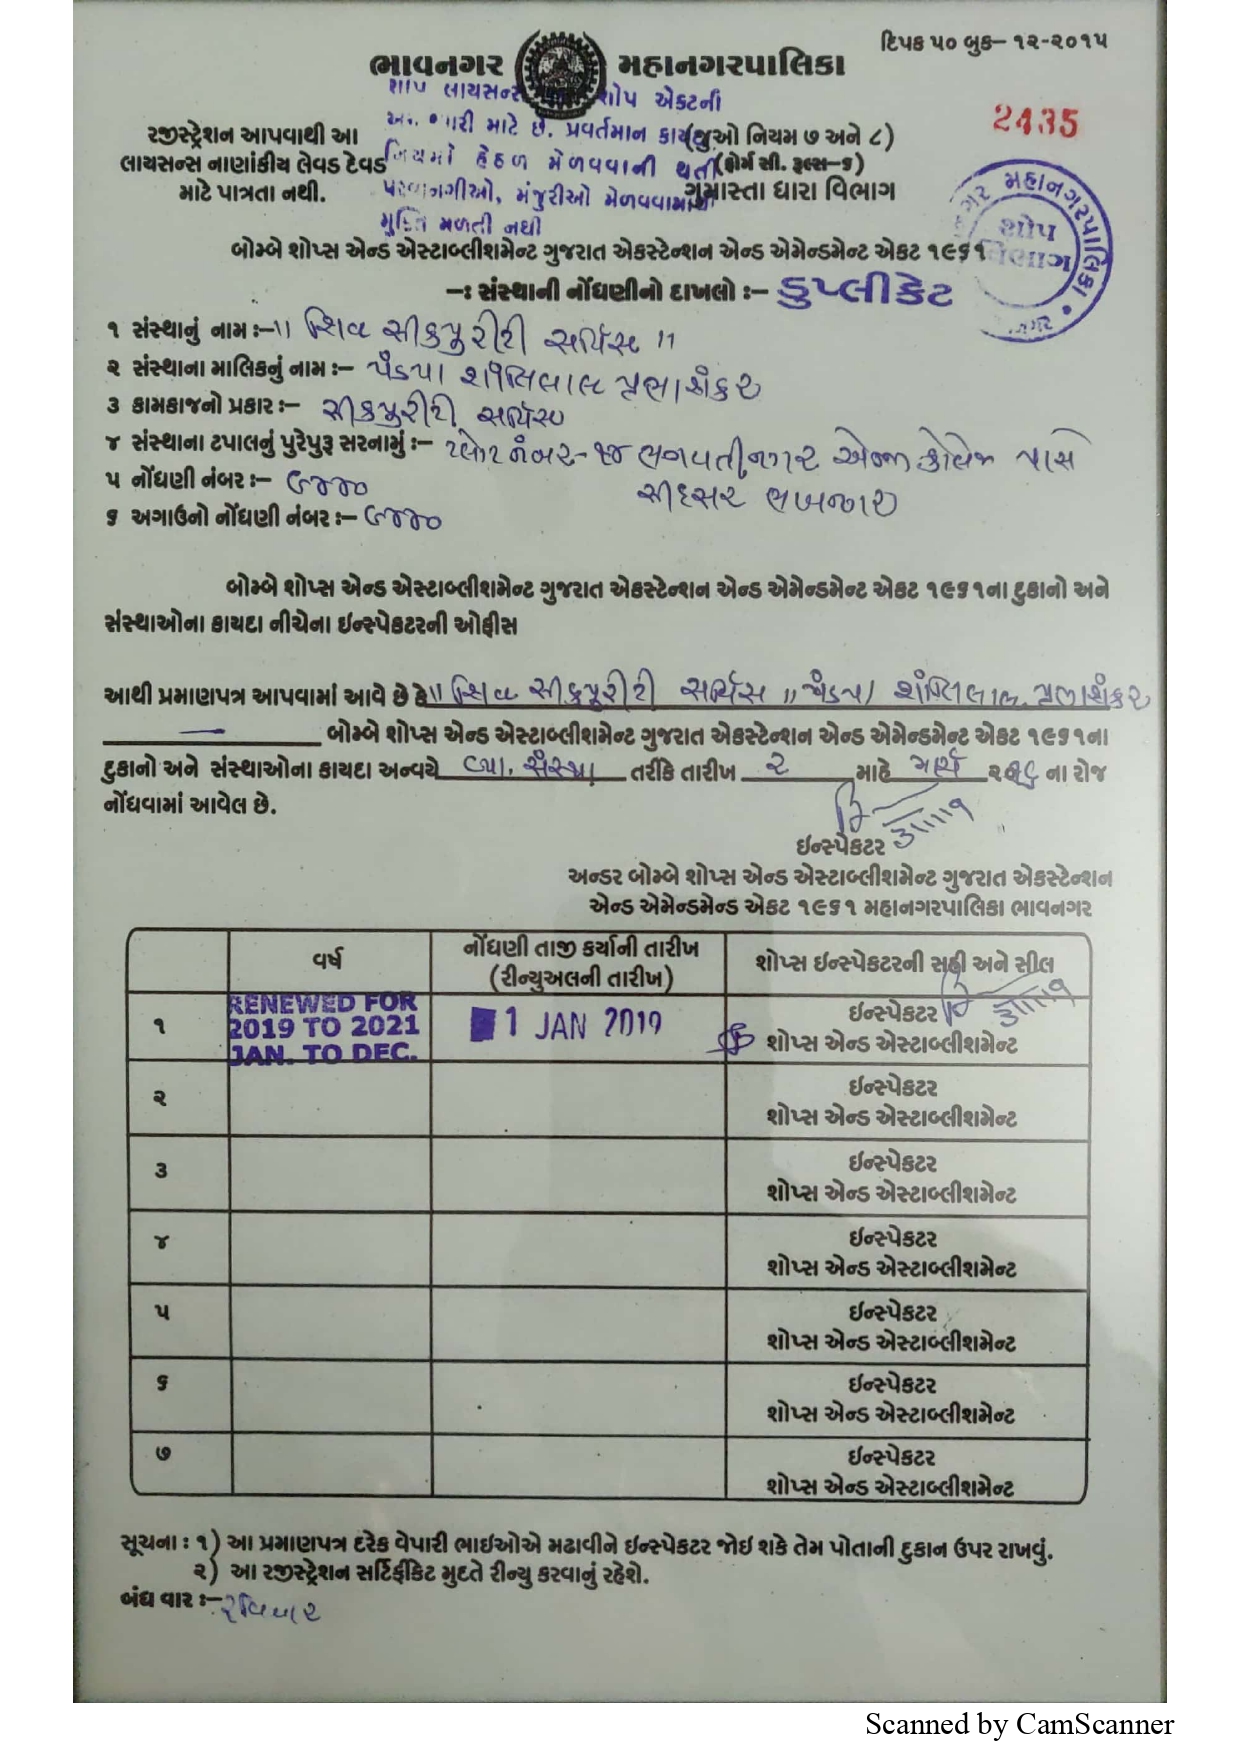 દિપક ૫૦ બુક– ૧૨-૨૦૧૫
ભાવનગર મહાનગરપાલિકા
શોપ લાયસન્સ શોપ એકટની
2435
માટે છે. પ્રવર્તમાન કાયદા
(જુઓ નિયમ ૭ અને ૮)
રજીસ્ટ્રેશન આપવાથી આ
લાયસન્સ નાણાંકીય લેવડ દેવડ
માટે પાત્રતા નથી.
નિયમો હેઠળ મેળવવાની થતી
(ફોર્મ સી. રૂલ્સ–૬)
પરવાનગીઓ, મંજુરીઓ મેળવવામાંથી
ગુમાસ્તા ધારા વિભાગ
મુક્તિ મળતી નથી
મહાનગરપાલિકા
શોપ
વિભાગ
બોમ્બે શોપ્સ એન્ડ એસ્ટાબ્લીશમેન્ટ ગુજરાત એકસ્ટેન્શન એન્ડ એમેન્ડમેન્ટ એકટ ૧૯૬૧
–: સંસ્થાની નોંધણીનો દાખલો :– ડુપ્લીકેટ
૧ સંસ્થાનું નામ :–" શિવ સીક્યુરીટી સર્વિસ "
૨ સંસ્થાના માલિકનું નામ :– પંડયા શાંતિલાલ પ્રભાશંકર
૩ કામકાજનો પ્રકાર :– સીક્યુરીટી સર્વિસ
૪ સંસ્થાના ટપાલનું પુરેપુરૂ સરનામું :– પ્લોટ નંબર- ભગવતીનગર એન્જી કોલેજ પાસે
સીદસર
૫ નોંધણી નંબર :– ૯૪૪૦
૬ અગાઉનો નોંધણી નંબર :– ૯૪૪૦
બોમ્બે શોપ્સ એન્ડ એસ્ટાબ્લીશમેન્ટ ગુજરાત એકસ્ટેન્શન એન્ડ એમેન્ડમેન્ટ એકટ ૧૯૬૧ના દુકાનો અને
સંસ્થાઓના કાયદા નીચેના ઇન્સ્પેકટરની ઓફીસ
આથી પ્રમાણપત્ર આપવામાં આવે છે કે " શિવ સીક્યુરીટી સર્વિસ " પંડયા શાંતિલાલ પ્રભાશંકર
— બોમ્બે શોપ્સ એન્ડ એસ્ટાબ્લીશમેન્ટ ગુજરાત એકસ્ટેન્શન એન્ડ એમેન્ડમેન્ટ એકટ ૧૯૬૧ના
દુકાનો અને સંસ્થાઓના કાયદા અન્વયે વ્યા. સંસ્થા તરીકે તારીખ ૨ માહે માર્ચ ના રોજ
નોંધવામાં આવેલ છે.
ઇન્સ્પેકટર
અન્ડર બોમ્બે શોપ્સ એન્ડ એસ્ટાબ્લીશમેન્ટ ગુજરાત એકસ્ટેન્શન
એન્ડ એમેન્ડમેન્ડ એકટ ૧૯૬૧ મહાનગરપાલિકા ભાવનગર
વર્ષ નોંધણી તાજી કર્યાની તારીખ (રીન્યુઅલની તારીખ) શોપ્સ ઇન્સ્પેકટરની સહી અને સીલ
૧ RENEWED FOR 2019 TO 2021 JAN. TO DEC. 1 JAN 2019 ઇન્સ્પેકટર
શોપ્સ એન્ડ એસ્ટાબ્લીશમેન્ટ
૨ ઇન્સ્પેકટર
શોપ્સ એન્ડ એસ્ટાબ્લીશમેન્ટ
૩ ઇન્સ્પેકટર
શોપ્સ એન્ડ એસ્ટાબ્લીશમેન્ટ
૪ ઇન્સ્પેકટર
શોપ્સ એન્ડ એસ્ટાબ્લીશમેન્ટ
૫ ઇન્સ્પેકટર
શોપ્સ એન્ડ એસ્ટાબ્લીશમેન્ટ
૬ ઇન્સ્પેકટર
શોપ્સ એન્ડ એસ્ટાબ્લીશમેન્ટ
૭ ઇન્સ્પેકટર
શોપ્સ એન્ડ એસ્ટાબ્લીશમેન્ટ
સૂચના : ૧) આ પ્રમાણપત્ર દરેક વેપારી ભાઇઓએ મઢાવીને ઇન્સ્પેકટર જોઇ શકે તેમ પોતાની દુકાન ઉપર રાખવું.
૨) આ રજીસ્ટ્રેશન સર્ટિફીકેટ મુદતે રીન્યુ કરવાનું રહેશે.
બંધ વાર :– રવિવાર
Scanned by CamScanner